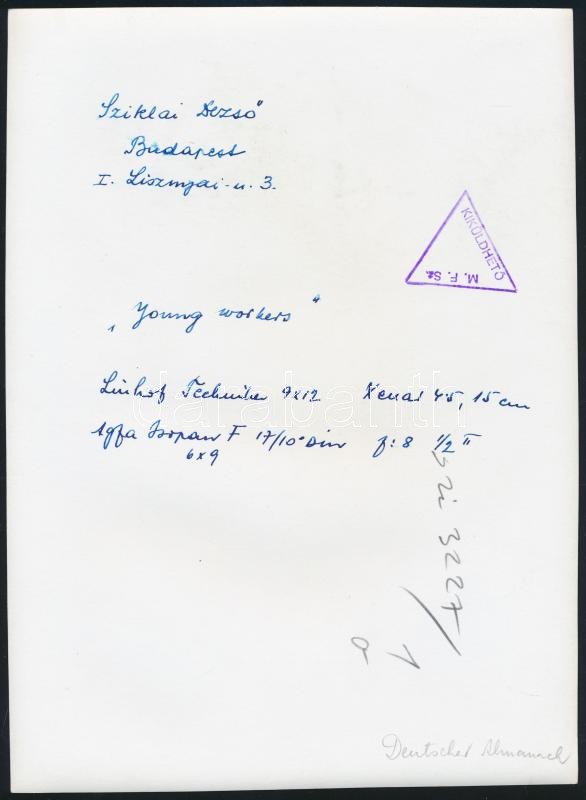 Sziklai Dezső
Budapest
I. Lisznyai-u. 3.
KIKÜLDHETŐ
M. F. Sz.
„Young workers"
Linhof Techniker 9x12 Xenar 4,5, 15 cm
Agfa Isopan F 17/10° Din f:8 1/2 "
6x9
darabanth
szi 3227/
1
Deutscher Almanach